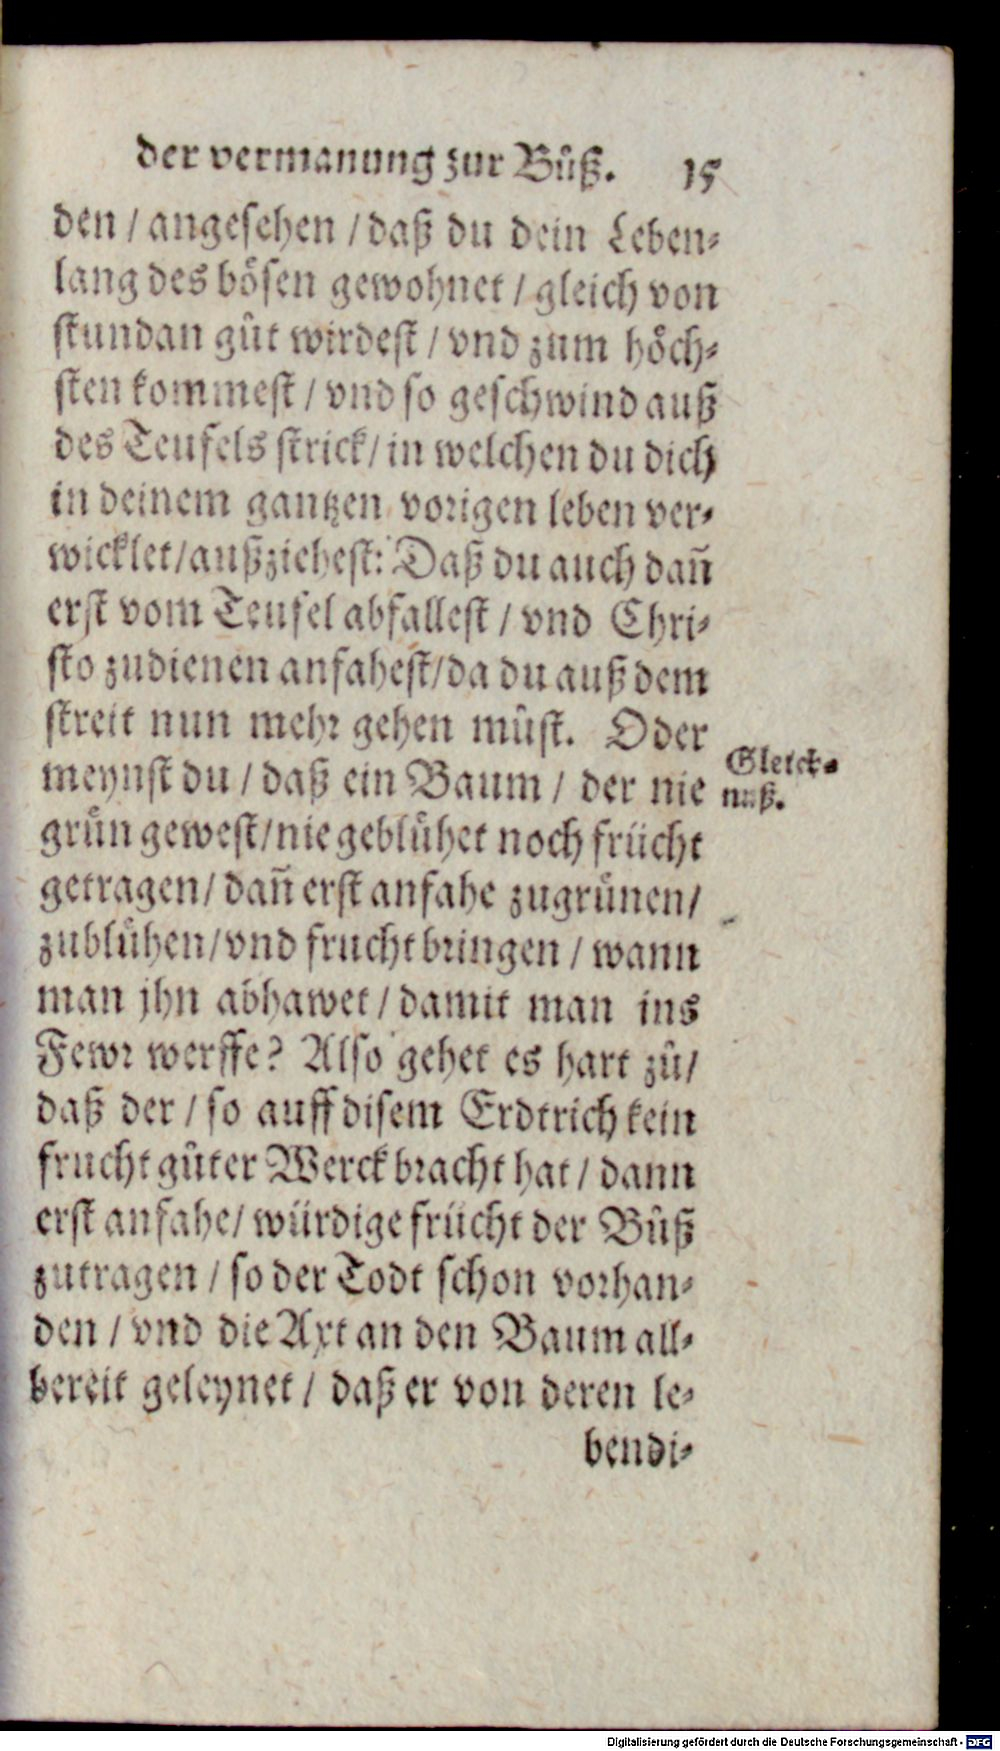 der vermanung zur Bůß. 15
den / angesehen / daß du dein Leben-
lang des bösen gewohnet / gleich von
stundan gůt wirdest / vnd zum höch-
sten kommest / vnd so geschwind auß
des Teufels strick / in welchen du dich
in deinem gantzen vorigen leben ver-
wicklet / außziehest: Daß du auch dañ
erst vom Teufel abfallest / vnd Chri-
sto zudienen anfahest / da du auß dem
streit nun mehr gehen můst. Oder
meynst du / daß ein Baum / der nie
grůn gewest / nie geblůhet noch frücht
getragen / dañ erst anfahe zugrůnen /
zublůhen / vnd frucht bringen / wann
man jhn abhawet / damit man ins
Fewr werffe? Also gehet es hart zů /
daß der / so auff disem Erdtrich kein
frucht gůter Werck bracht hat / dann
erst anfahe / würdige frücht der Bůß
zutragen / so der Todt schon vorhan-
den / vnd die Axt an den Baum all-
bereit geleynet / daß er von deren le-
bendi-
Gleick-
nuß.
Digitalisierung gefördert durch die Deutsche Forschungsgemeinschaft - DFG